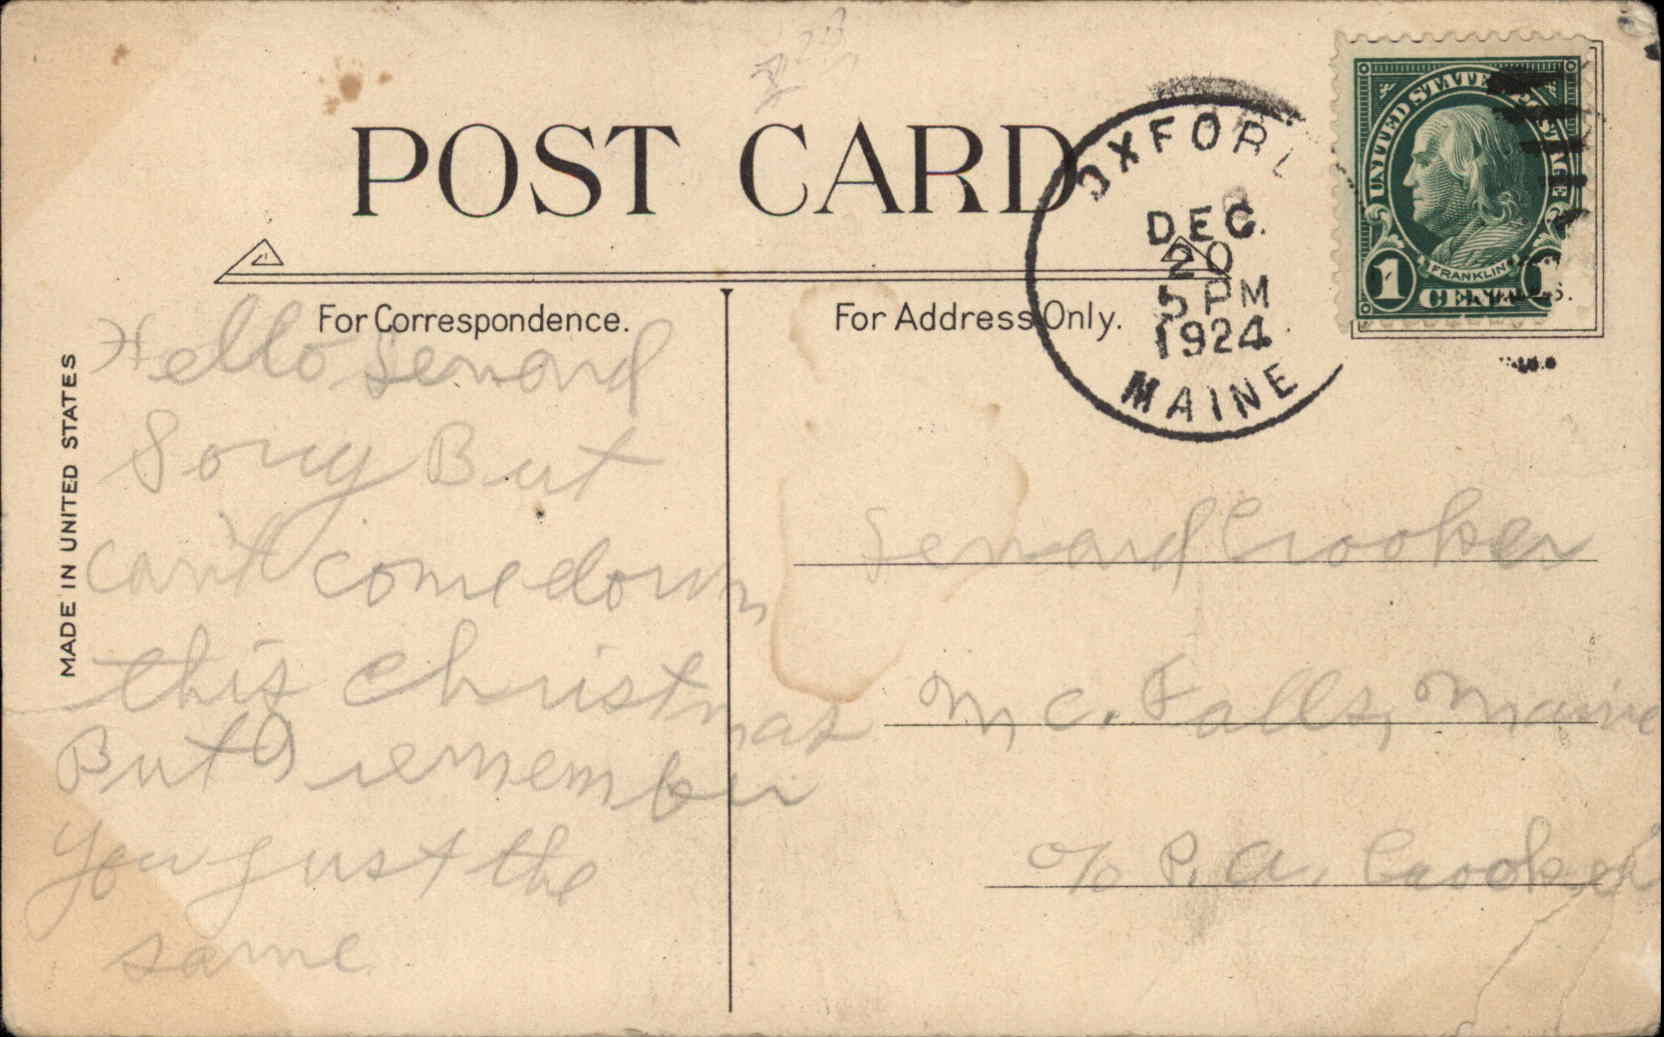 POST CARD
OXFORD
DEC.
20
5 PM
1924
MAINE
UNITED STATES POSTAGE
FRANKLIN
1 CENT 1
For Correspondence.
For Address Only.
MADE IN UNITED STATES
Hello Lenard
Sorry But
can't come down
this Christmas
But I remember
you just the
same
Lenard Crooker
Mc. Falls, Maine
c/o P. A. Crooker